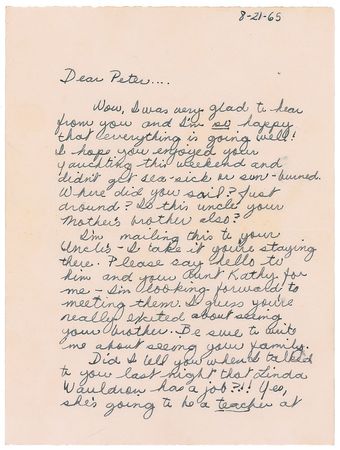 8-21-65
Dear Peter....
Wow, I was very glad to hear
from you and I'm so happy
that everything is going well!
I hope you enjoyed your
yauchting this weekend and
didn't get sea-sick or sun-burned.
Where did you sail? Just
around? Is this uncle your
Mother's brother also?
I'm mailing this to your
Uncle's - I take it you're staying
there. Please say hello to
him and your Aunt Kathy for
me - I'm looking forward to
meeting them. I guess you're
really excited about seeing
your brother. Be sure to write
me about seeing your family.
Did I tell you when I talked
to you last night that Linda
Wauldron has a job?!! Yes,
she's going to be a teacher at